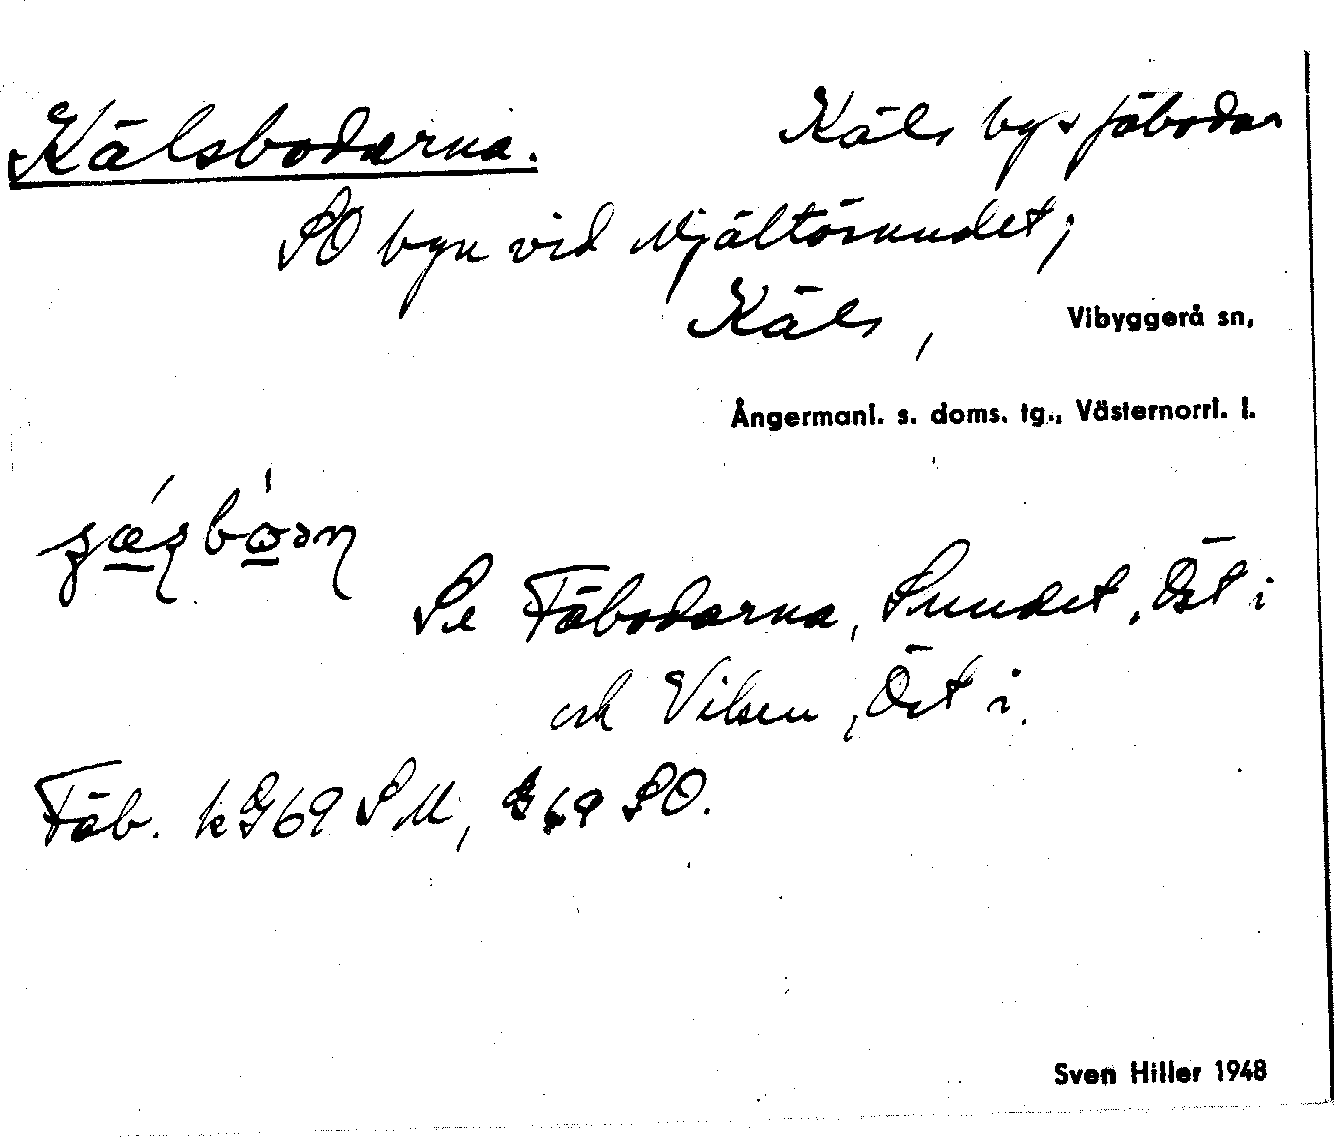 Kälsbodarna. Käls bys fäbodar
SO byn vid Mjältösundet;
Käls, Vibyggerå sn,
Ångermanl. s. doms. tg., Västernorrl. l.
Se Fäbodarna, Sundet, Öst i
och Vilsen, Öst i.
Fäb. k G69 SM, G69 SO.
Sven Hiller 1948